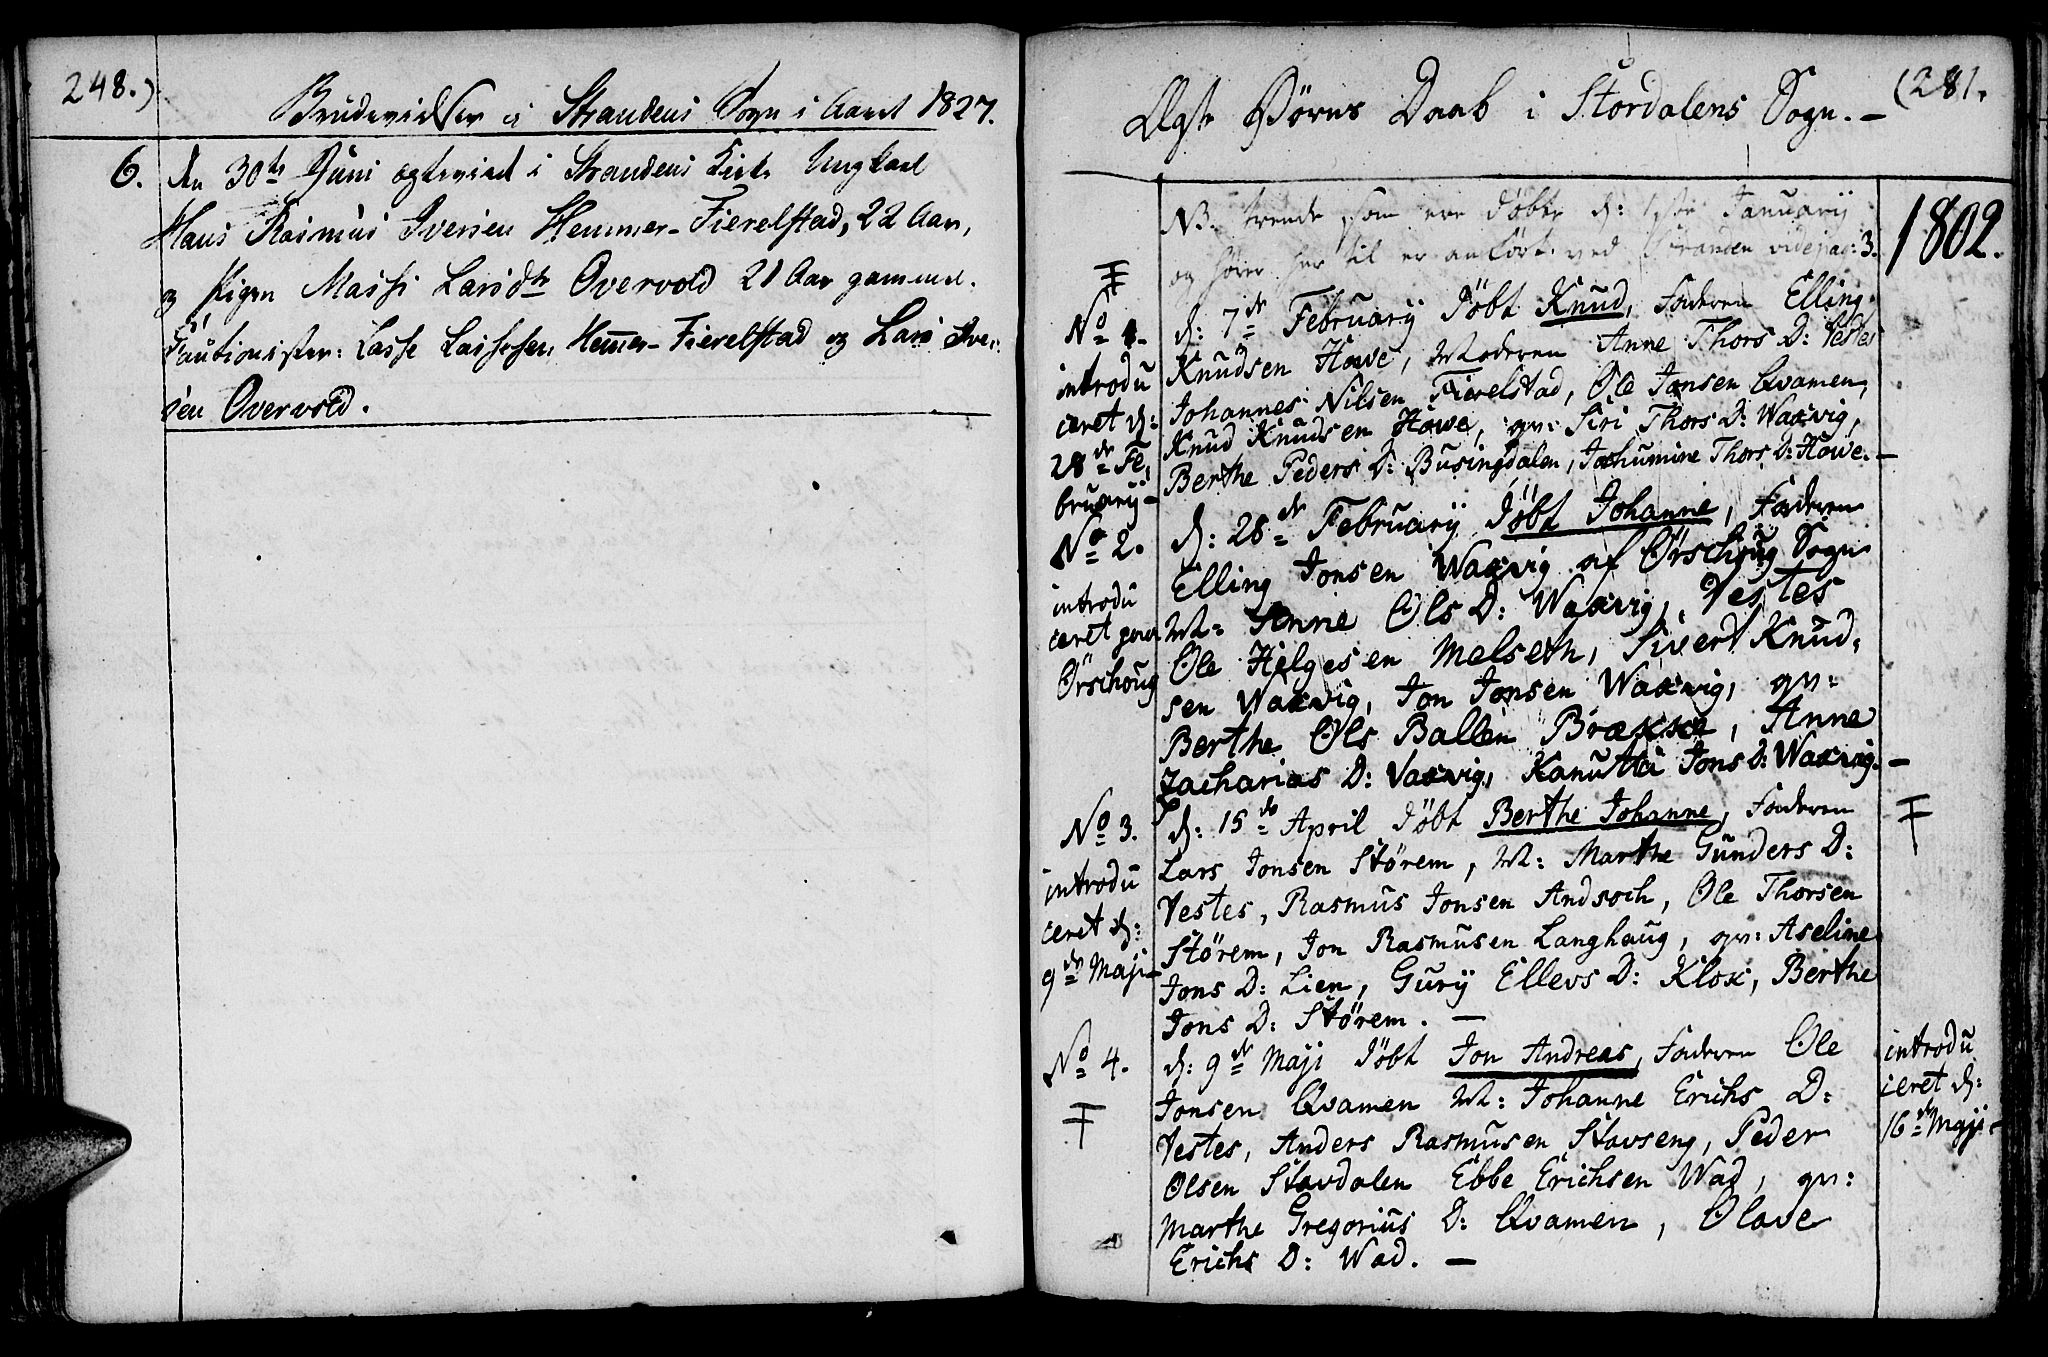 248.)
Brudevielser i Strandens Sogn i Aaret 1827.
6. den 30te Juni egteviet i Strandens Kirke Ungkarl
Hans Rasmus Iversen Hemmer-Fierelstad, 22 Aar,
og Pigen Massi Larsdtr Overvold 21 Aar gammel.
Cautionister: Lasse Lassesen Hemmer-Fierelstad og Lars Iver-
sen Overvold.
(281.
Ægte Børns Daab i Stordalens Sogn. -
1802.
NB. trende, som ere døbte d: 1ste Januarij
og hører her til er anført ved Stranden vide pag: 3.
No 1.
introdu
ceret d:
28de Fe,
bruarij -
d: 7de Februarij døbt Knud, Faderen Elling
Knudsen Howe, Moderen Anne Thors D: Testes
Johannes Nilsen Fierelstad, Ole Jonsen Qvamen,
Knud Knudsen Howe, qv: Siri Thors D: Waxvig,
Berthe Peders D: Busingdalen, Jochumine Thors D: Howe. -
No 2.
introdu
ceret
Ørschoug
d: 28de Februarij døbt Johanne, Faderen
Elling Jonsen Waxvig af Ørschoug Sogn
M: Anne Ols D: Waxvig, Testes
Ole Helgesen Melseth, Sivert Knud-
sen Waxvig, Jon Jonsen Waxvig, qv:
Berthe Ols Ballen Brække, Anne
Zacharias D: Vaxvig, Kanutta Jons D: Waxvig. -
No 3.
introdu
ceret d:
9de Maji -
d: 15de April døbt Berthe Johanne, Faderen
Lars Jonsen Störem, M: Marthe Gunders D:
Testes, Rasmus Jonsen Andsoch, Ole Thorsen
Störem, Jon Rasmusen Langhaug, qv: Aseline
Jons D: Lien, Gurij Ellevs D: Klox, Berthe
Jons D: Störem. -
No 4.
d: 9de Maji döbt Jon Andreas, Faderen Ole
Jonsen Qvamen M: Johanne Erichs D:
Testes, Anders Rasmusen Stavseng, Peder
Olsen Stavdalen Ebbe Erichsen Wad, qv:
Marthe Gregorius D: Qvamen, Olave
Erichs D: Wad. -
introdu
ceret d:
16de Maji -